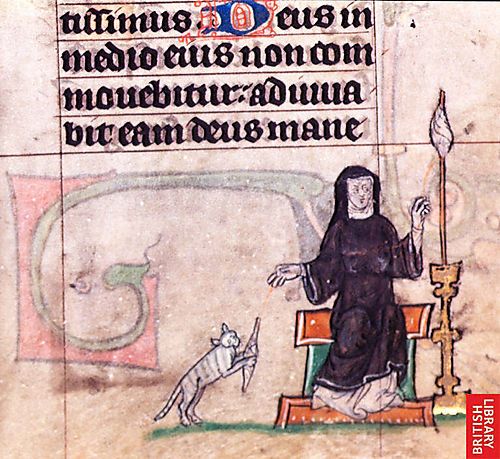 tissimus. Deus in
medio eius non com
mouebitur: adiuua
bit eam deus mane
BRITISH
LIBRARY